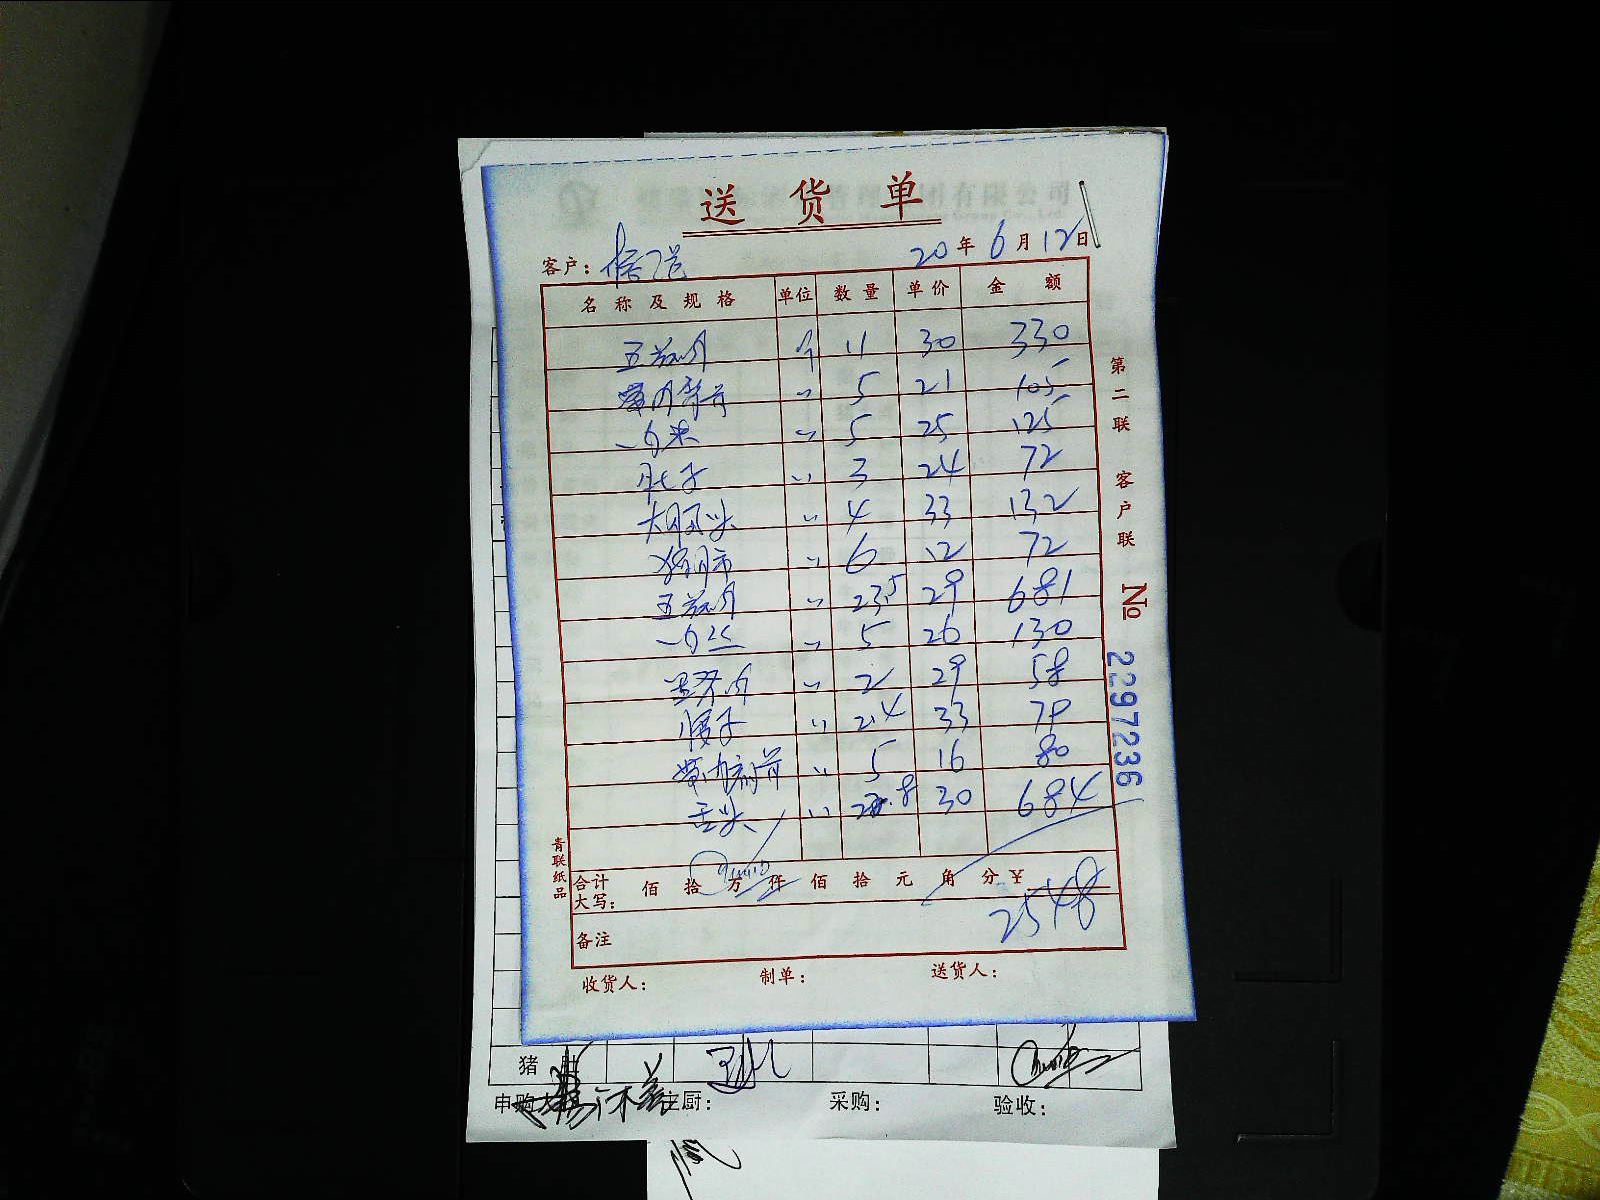 送 货 单
客户：
20 年 6 月 12 日
名 称 及 规 格 单位 数 量 单 价 金 额
五花肉 斤 11 30 330
带肉脊骨 〃 5 21 105
肉米 〃 5 25 125
肚子 〃 3 24 72
大肠头 〃 4 33 132
猪肺 〃 6 12 72
五花肉 〃 23.5 29 681
肉丝 〃 5 26 130
肉 〃 2 29 58
腰子 〃 2.4 33 79
带肉扇骨 〃 5 16 80
舌头 〃 22.8 30 684
合计大写： 佰 拾 万 仟 佰 拾 元 角 分 ￥ 2548
备注
收货人： 制单： 送货人：
第二联 客户联 № 2297236
青联纸品
猪 肚
申购 主厨： 采购： 验收：